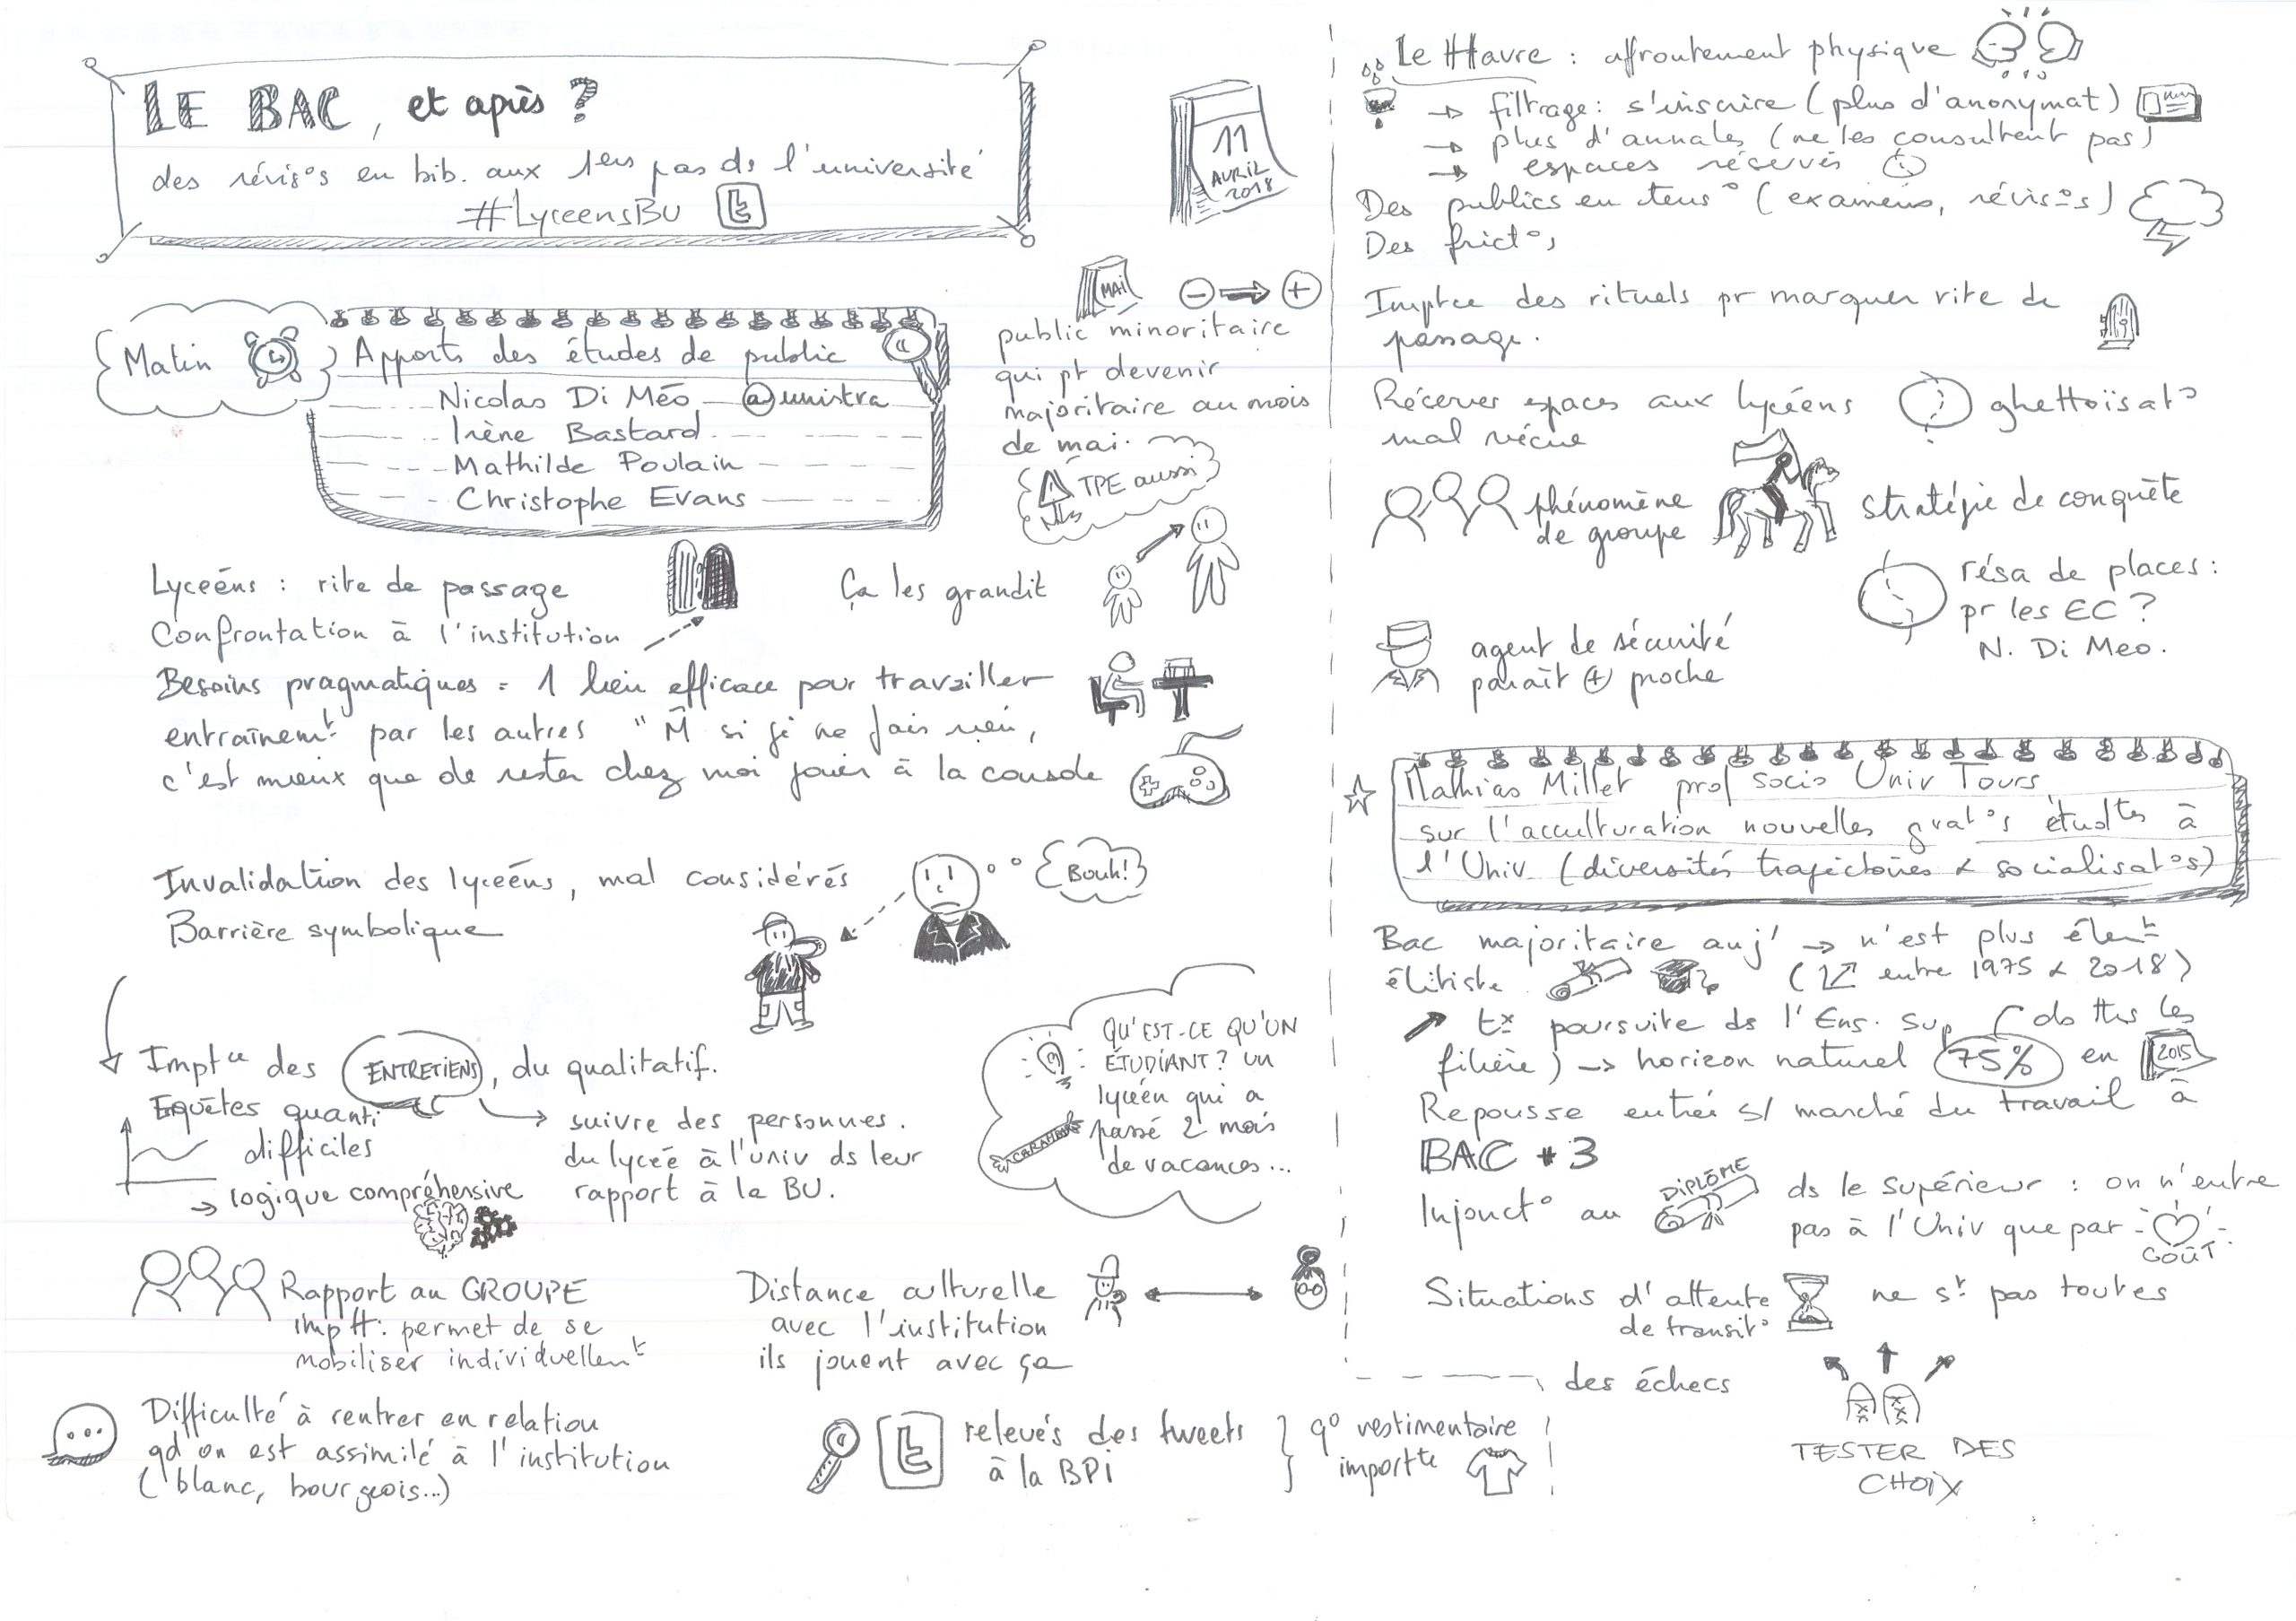 LE BAC, et après ?
des révis°s en bib. aux 1ers pas ds l'université
#LyceensBU
11
AVRIL
2018
Matin
Apports des études de public
Nicolas Di Méo @unistra
Irène Bastard
Mathilde Poulain
Christophe Evans
MAI
- ⇒ +
public minoritaire
qui pt devenir
majoritaire au mois
de mai.
TPE aussi
Lycéens : rite de passage
Confrontation à l'institution
Ça les grandit
Besoins pragmatiques = 1 lieu efficace pour travailler
entraînemt par les autres "M̂ si je ne fais rien,
c'est mieux que de rester chez moi jouer à la console
Invalidation des lycéens, mal considérés
Barrière symbolique
Bouh!
Imptce des ENTRETIENS, du qualitatif.
Enquêtes quanti
difficiles
→ logique compréhensive
→ suivre des personnes.
du lycée à l'univ ds leur
rapport à la BU.
QU'EST-CE QU'UN
ÉTUDIANT? UN
lycéen qui a
passé 2 mois
de vacances...
CARAMBAR
Rapport au GROUPE
imptt: permet de se
mobiliser individuellemt
Distance culturelle
avec l'institution
ils jouent avec ça
Difficulté à rentrer en relation
qd on est assimilé à l'institution
(blanc, bourgeois...)
relevés des tweets
à la BPi
q° vestimentaire
importte
Le Havre : affrontement physique
→ filtrage: s'inscrire (plus d'anonymat)
→ plus d'annales (ne les consultent pas)
→ espaces réservés
Des publics en tens° (examens, révis°s)
Des frict°s
Imptce des rituels pr marquer rite de
passage.
Réserver espaces aux lycéens
mal vécue
ghettoïsat°
phénomène
de groupe
stratégie de conquête
résa de places :
pr les EC ?
N. Di Meo.
agent de sécurité
paraît + proche
Mathias Millet prof socio Univ Tours
sur l'acculturation nouvelles gnérat°s étudtes à
l'Univ (diversités trajectoires & socialisat°s)
Bac majoritaire auj' → n'est plus élemt
élitiste (↗ entre 1975 & 2018)
↗ tx poursuite ds l'Ens. Sup (ds ttes les
filière) → horizon naturel 75% en 2015
Repousse entrée s/ marché du travail à
BAC + 3
Injonct° au DIPLÔME ds le Supérieur : on n'entre
pas à l'Univ que par GOÛT
Situations d'attente
de transit° ne st pas toutes
des échecs
TESTER DES
CHOIX